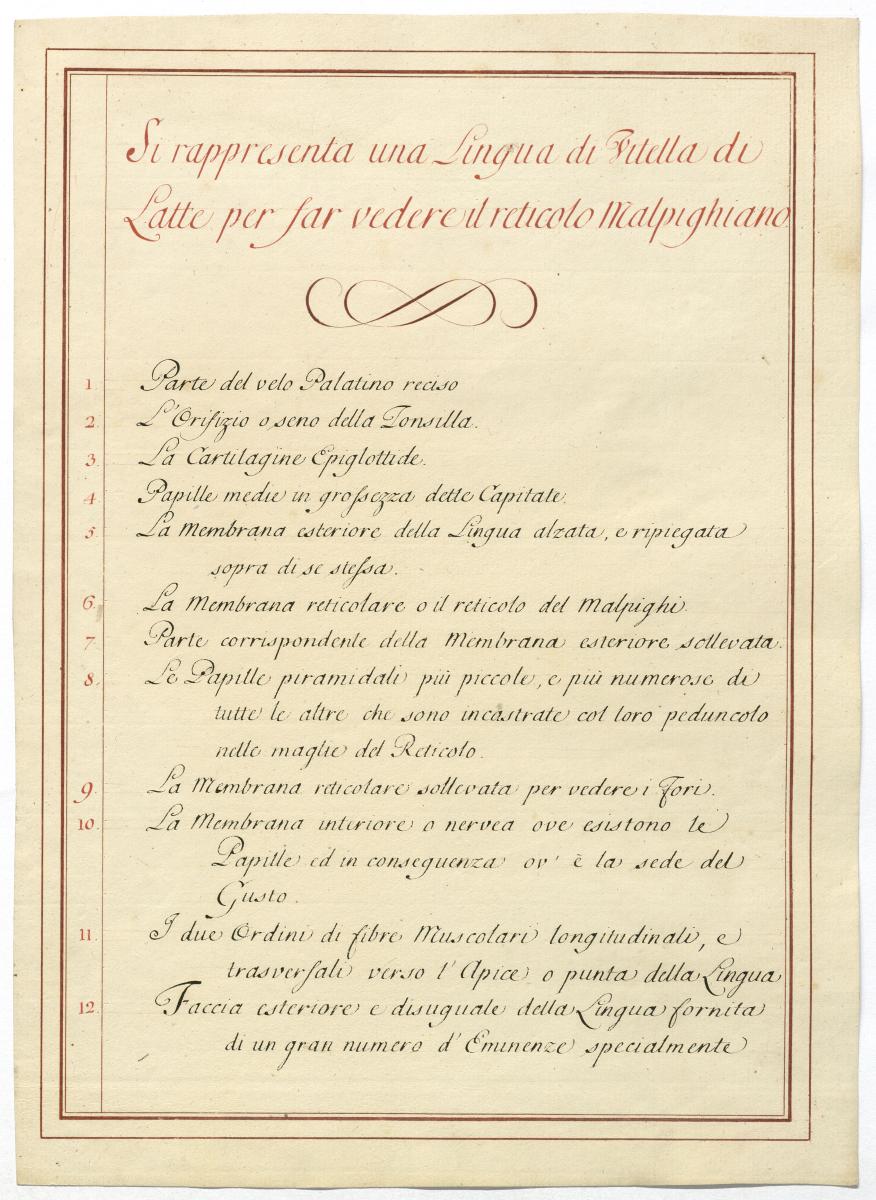 Si rappresenta una Lingua di Vitella di
Latte per far vedere il reticolo Malpighiano
1. Parte del velo Palatino reciso
2. L'Orifizio o seno della Tonsilla.
3. La Cartilagine Epiglottide.
4. Papille medie in grossezza dette Capitate.
5. La Membrana esteriore della Lingua alzata, e ripiegata
sopra di se stessa.
6. La Membrana reticolare o il reticolo del Malpighi.
7. Parte corrispondente della Membrana esteriore sollevata.
8. Le Papille piramidali più piccole, e più numerose di
tutte le altre che sono incastrate col loro peduncolo
nelle maglie del Reticolo.
9. La Membrana reticolare sollevata per vedere i Fori.
10. La Membrana interiore o nervea ove esistono le
Papille ed in conseguenza ov' è la sede del
Gusto.
11. I due Ordini di fibre Muscolari longitudinali, e
trasversali verso l'Apice o punta della Lingua
12. Faccia esteriore e disuguale della Lingua fornita
di un gran numero d'Eminenze specialmente